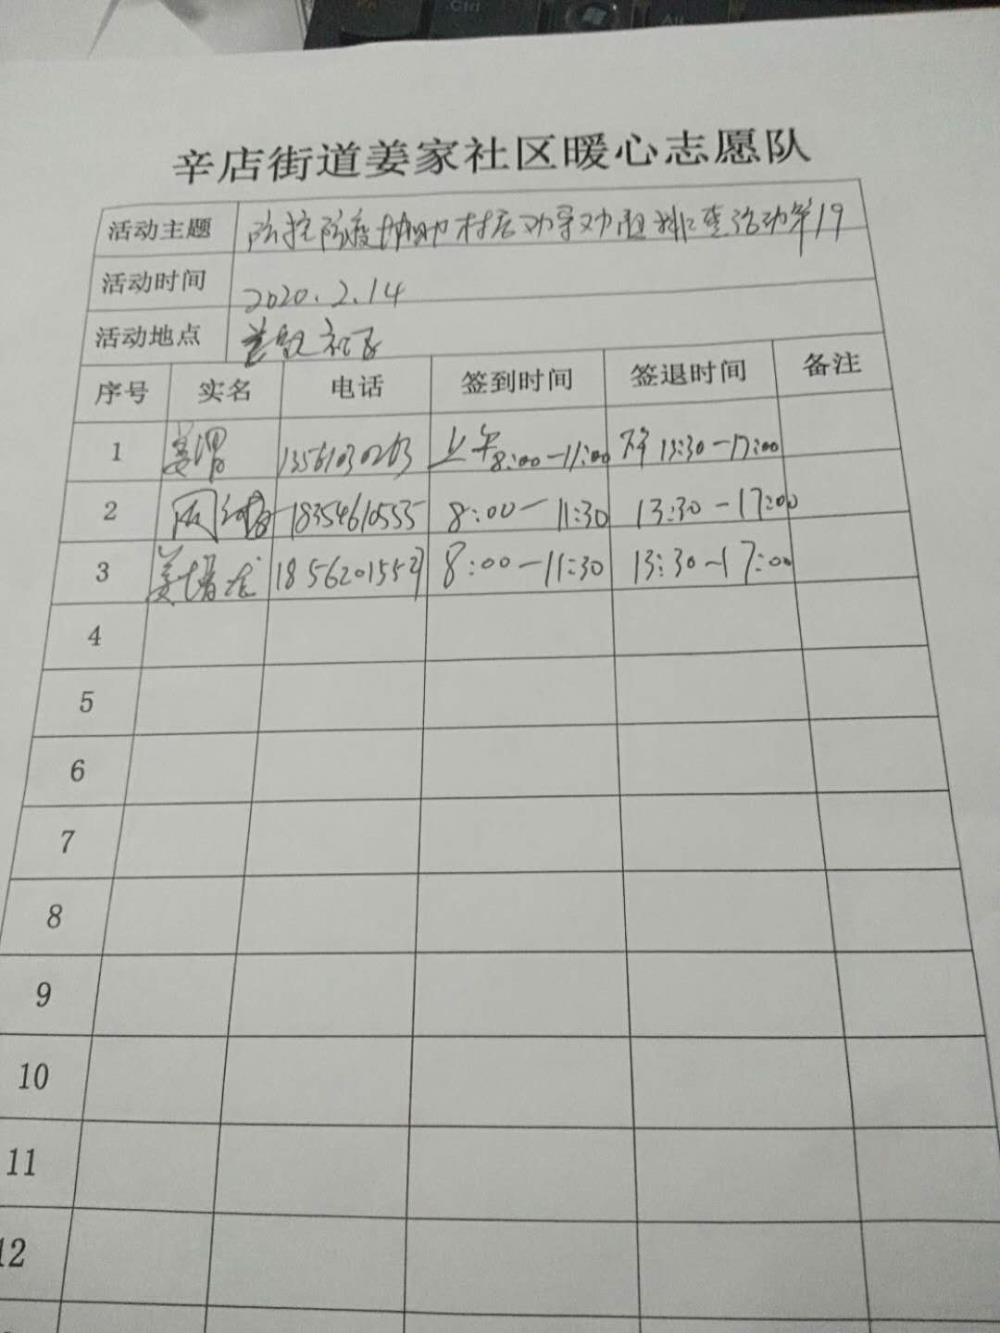 Ctrl
Alt
辛店街道姜家社区暖心志愿队
活动主题 防控防疫协助村居劝导劝阻排查活动第19
活动时间 2020.2.14
活动地点 姜家社区
序号 实名 电话 签到时间 签退时间 备注
1 姜 上午8:00-11:00 下午13:30-17:00
2 18354610535 8:00-11:30 13:30-17:00
3 姜 8:00-11:30 13:30-17:00
4
5
6
7
8
9
10
11
12